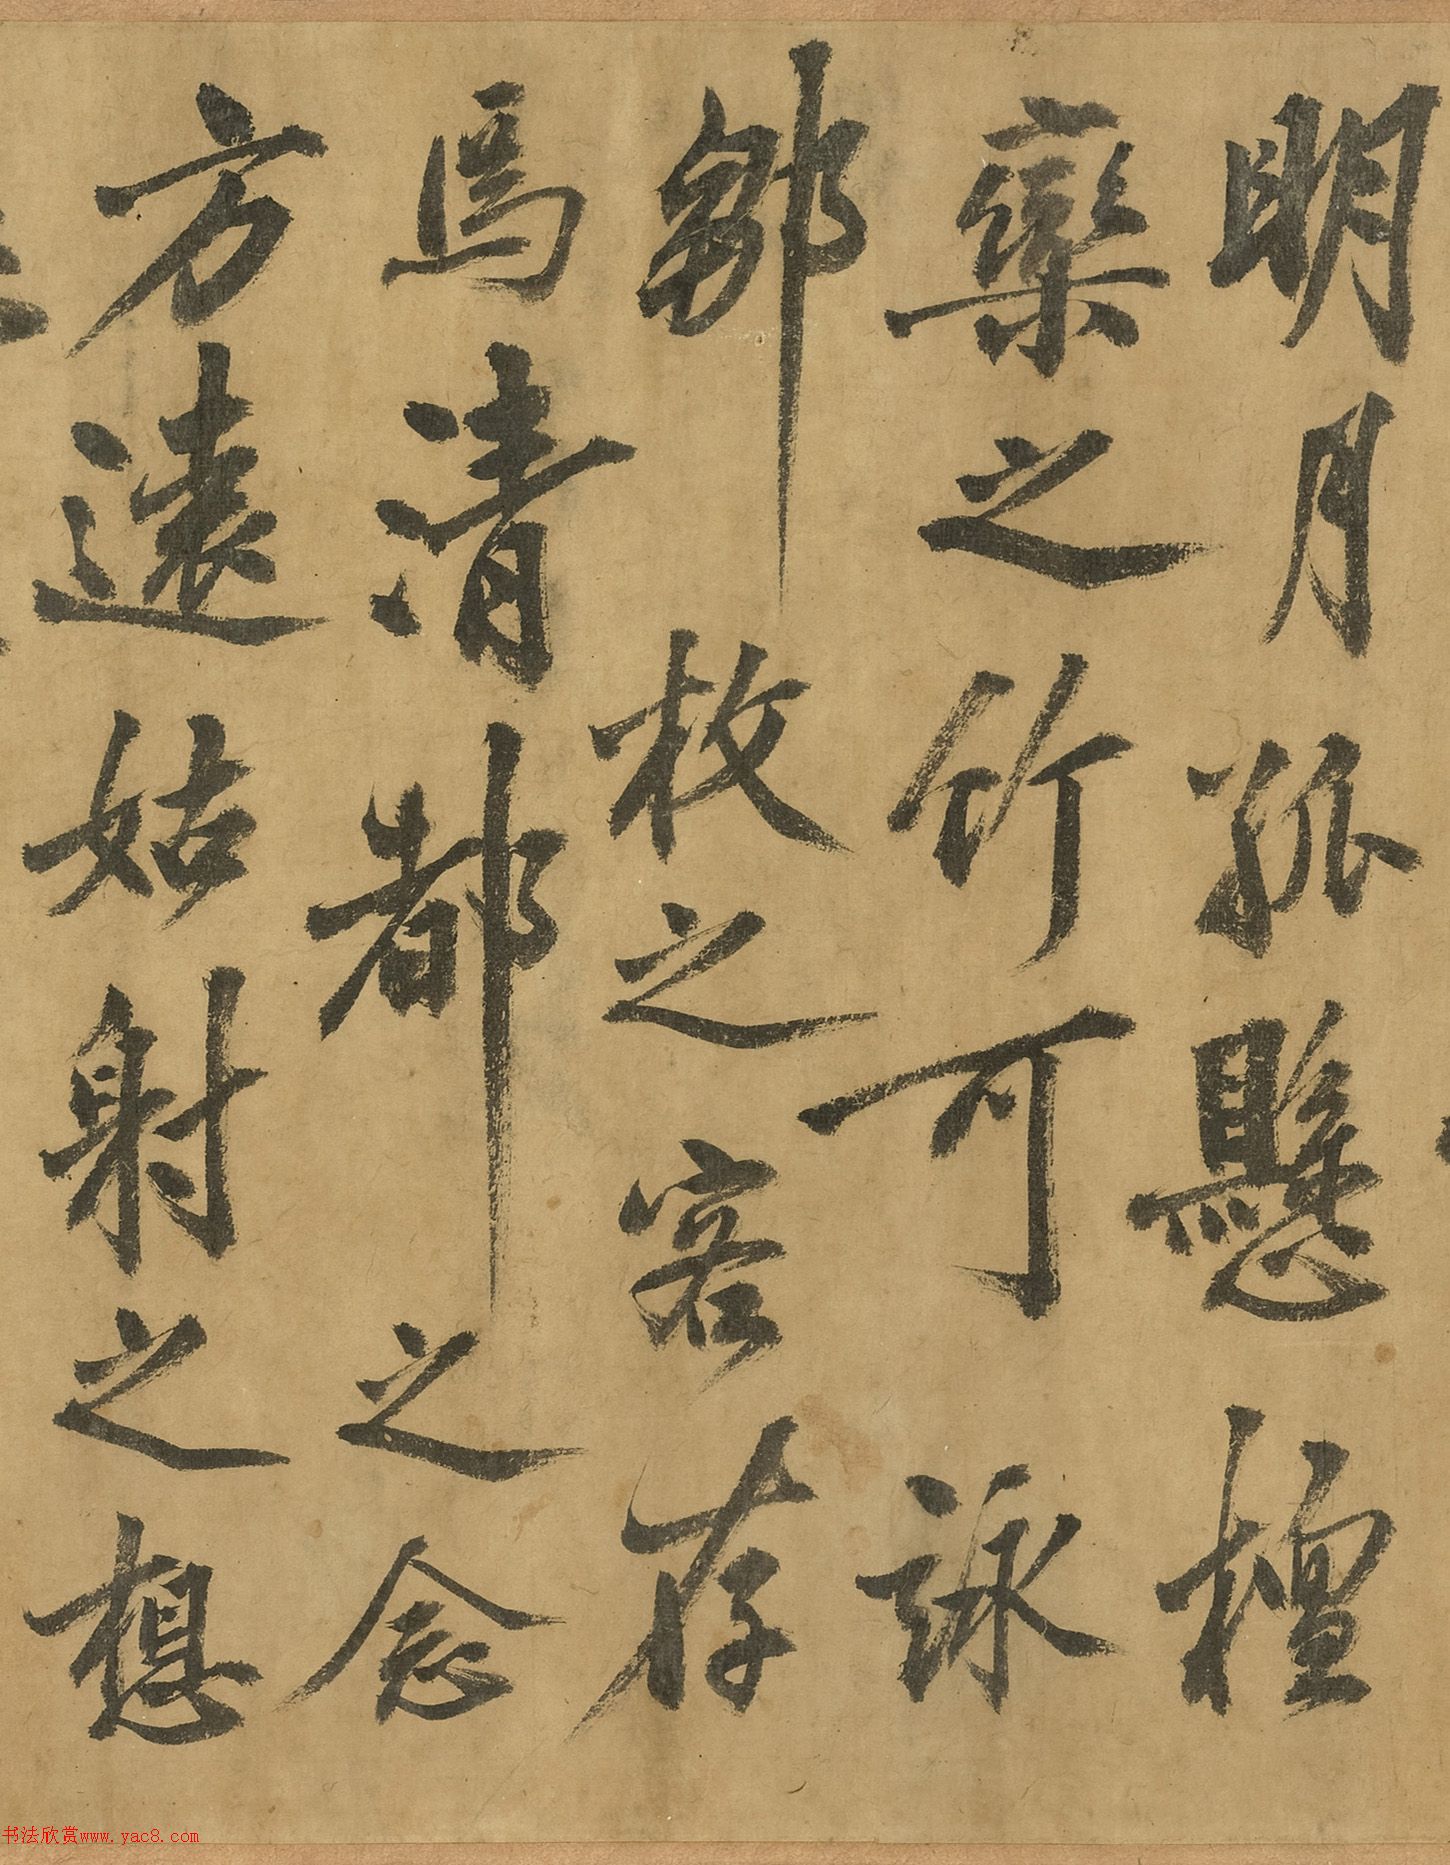 明月孤懸檀
欒之竹可詠
鄒枚之客存
焉清都之念
方遠姑射之想
书法欣赏www.yac8.com